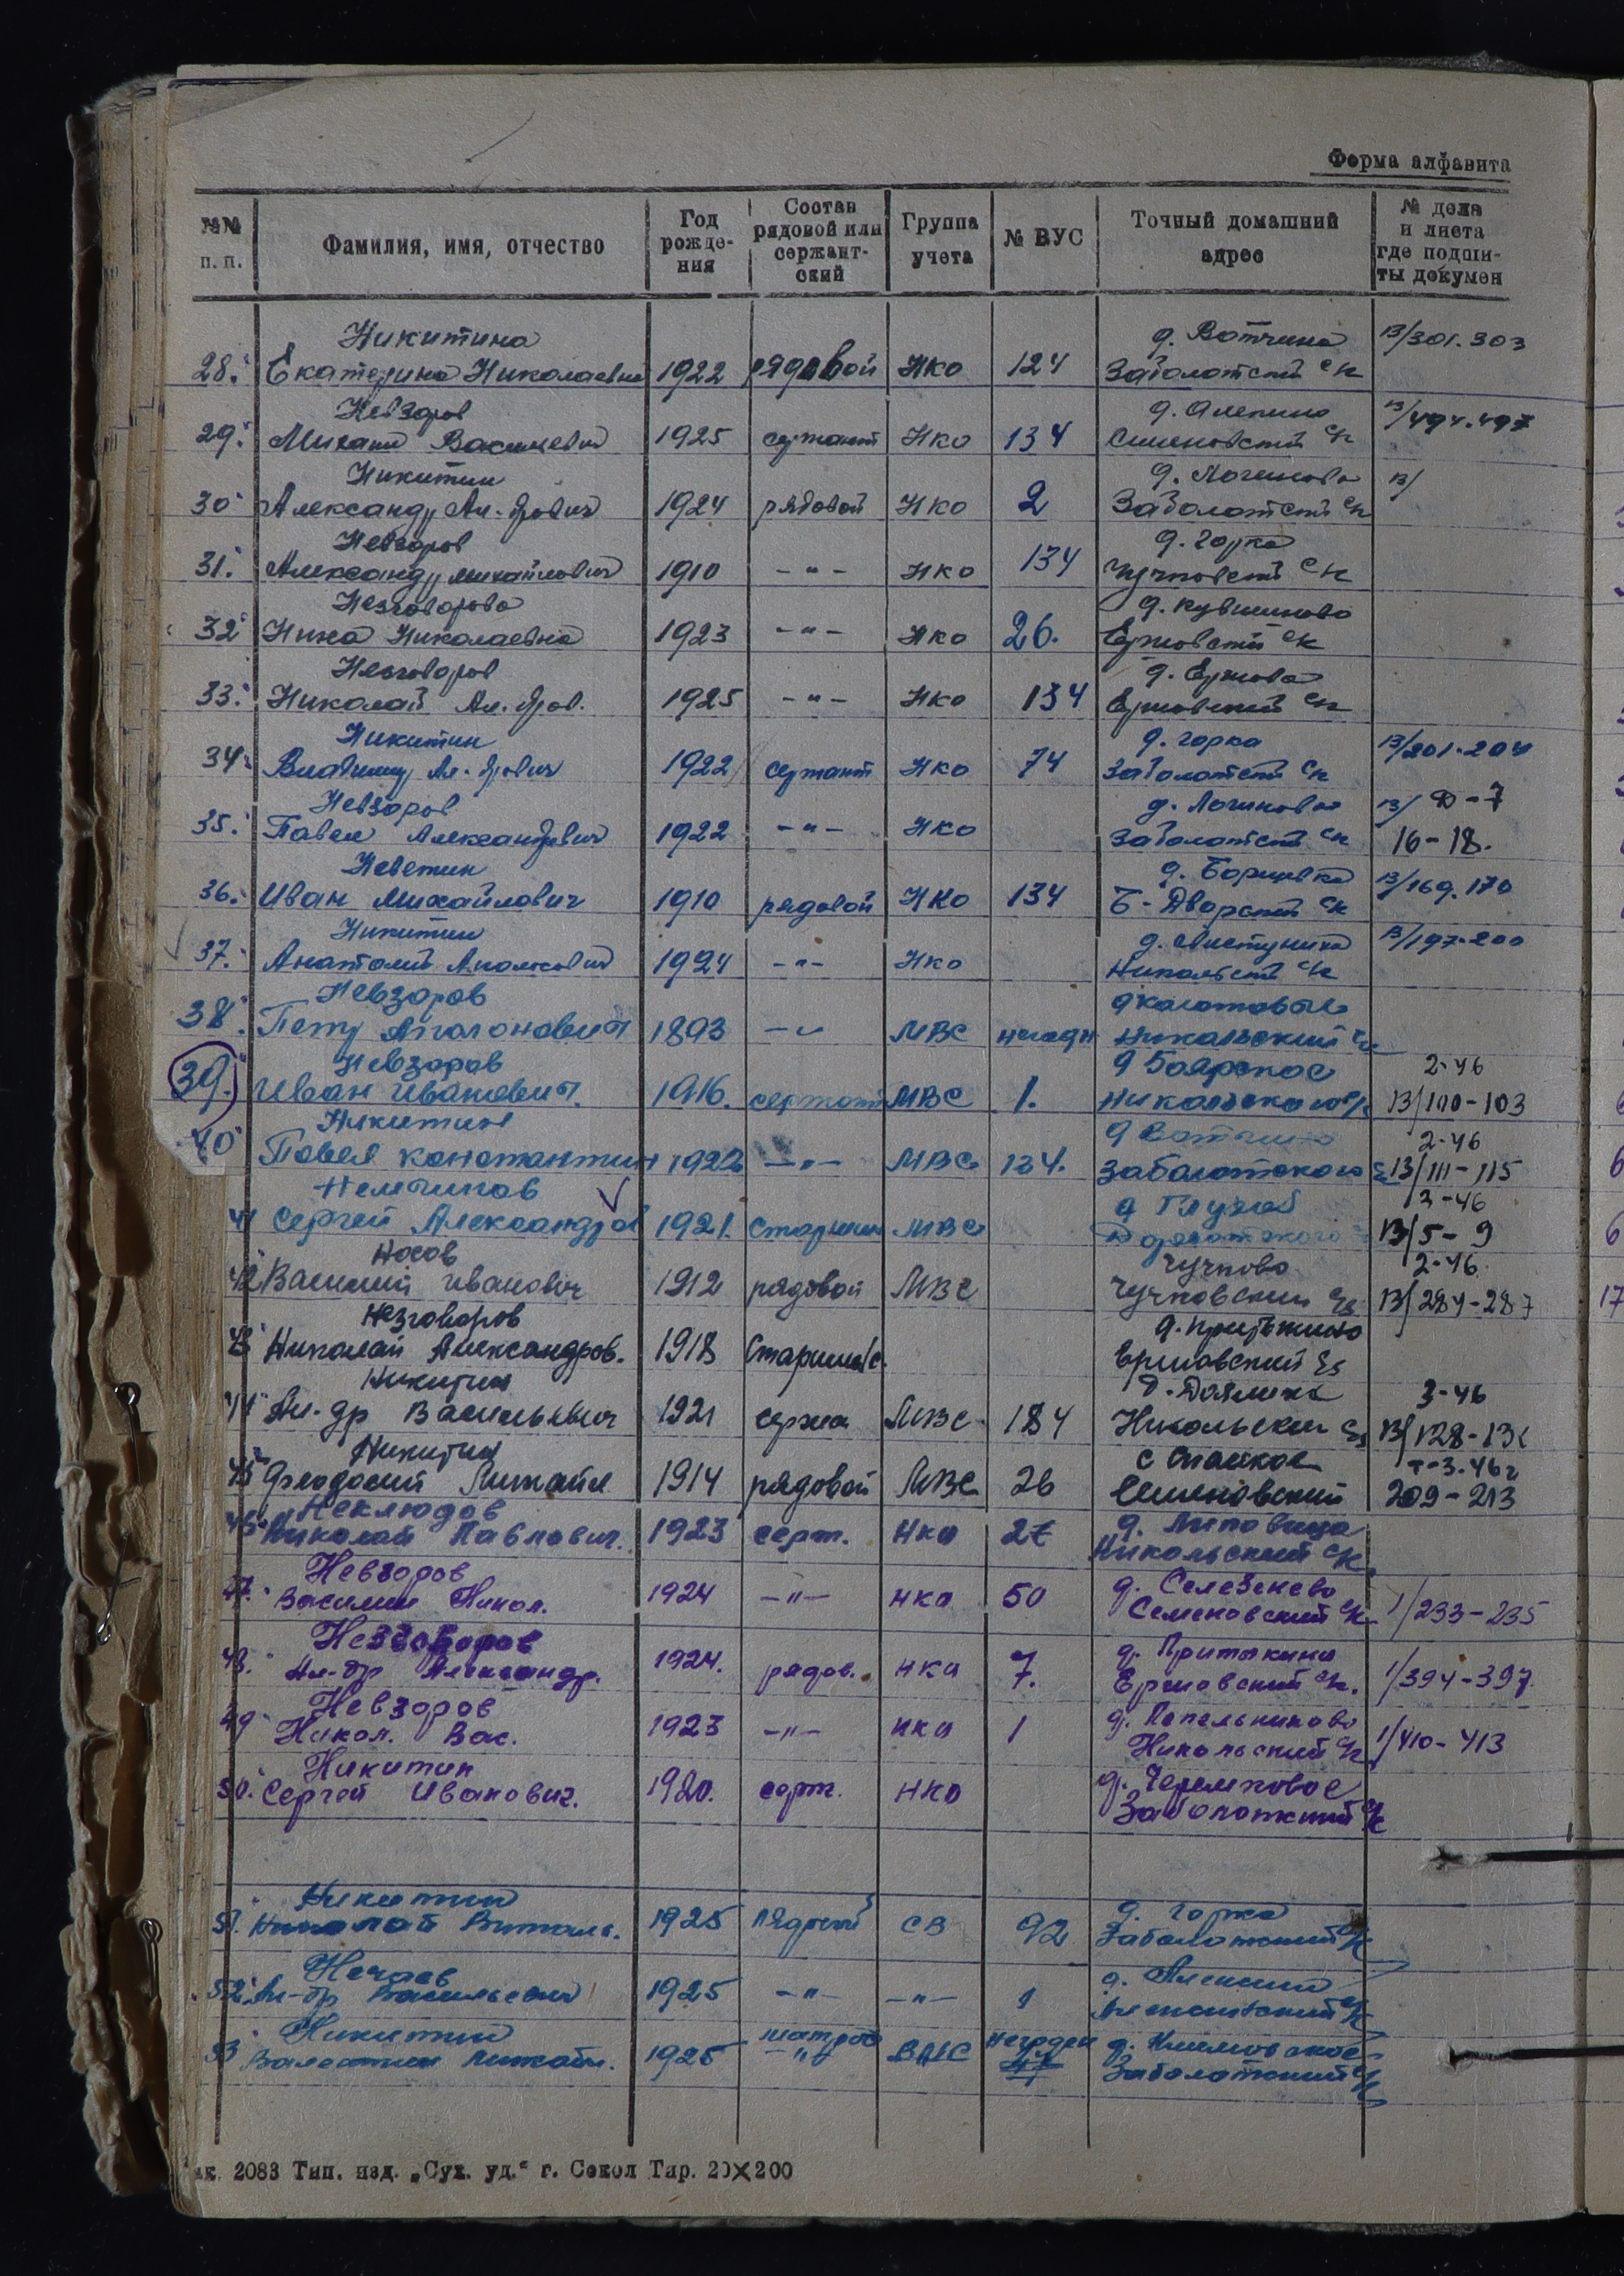 Форма алфавита
№№ п. п. Фамилия, имя, отчество Год рожде- ния Состав рядовой или сержант- ский Группа учета № ВУС Точный домашний адрес № дела и листа где подши- ты докумен
Никитина д. Вотчина 13/301.303
28. Екатерина Николаевна 1922 рядовой НКО 124 Заболотский с/к
Невзоров д. Алепино 13/494.497
29. Михаил Васильевич 1925 сержант НКО 134 Семеновский с/к
Никитин д. Логиново 13/
30 Александр Ал-дрович 1924 рядовой НКО 2 Заболотский с/к
Невзоров д. Горка
31. Александр Михайлович 1910 -"- НКО 134 Чучковский с/к
Незговорова д. Кувшиново
32 Нина Николаевна 1923 -"- НКО 26. Ершовский с/к
Незговоров д. Ершово
33. Николай Ал. дров. 1925 -"- НКО 134 Ершовский с/к
Никитин д. Горка 13/201.204
34. Владимир Ал-дрович 1922 сержант НКО 74 Заболотский с/к
Невзоров д. Логиново 13/ Ф-7
35. Павел Александрович 1922 -"- НКО Заболотский с/к 16-18.
Неветин д. Борщевка 13/169.170
36. Иван Михайлович 1910 рядовой НКО 134 Б-Дворский с/к
Никитин д. 13/197.200
37. Анатолий 1924 -"- НКО Никольский с/к
Невзоров
38. Петр Аполонович 1893 -"- МВС негодн Никольский с/к
Невзоров д Боярское 2-46
39. Иван Иванович. 1916. сержант МВС 1. Никольского с/к 13/100-103
Никитин д Вотчино 2-46
40 Павел Константин 1922 -"- МВС 134. Заболотского 13/111-115
Немчинов д 3-46
41 Сергей Александров 1921. Старшин МВС 13/5-9
Носов Чучково 2-46
42 Василий Иванович 1912 рядовой МВС Чучковский с/с 13/284-287
Незговоров д. Притыкино
43 Николай Александров. 1918 Старши/с. Ершовский с/с
Никитин д. 3-46
44 Ал-др Васильевич 1921 сержа МВС 184 Никольский с/с 13/128-13
Никитин с Спасское 3.46г
45 Феодосий Михайл 1914 рядовой МВС 26 Семеновский 209-213
Неклюдов д. Липовица
46 Николай Павлович. 1923 серж. НКО Никольский с/к
Невзоров д. Селезенево
47. Василий Никол. 1924 -"- НКО 50 Семеновский с/к 1/233-235
Незговоров д. Притыкина
48. Ал-др Александр. 1924. рядов. НКО 7. Ершовский с/к. 1/394-397
Невзоров д. Попельниково
49 Никол. Вас. 1923 -"- НКО 1 Никольский с/к 1/410-413
Никитин д. Черемховое
50. Сергей Иванович. 1920. серж. НКО Заболотский с/к
Никитин д. Горка
51. Николай Виталь. 1925 рядовой СВ 92 Заболотский с/к
Нечаев д.
52. Ал-др Васильевич 1925 -"- -"- 1
Никитин матрос негоден д. Климовское
53 Валентин Михайл. 1925 -"- ВМС Заболотский с/к
ак. 2083 Тип. изд. „Сух. уд.“ г. Сокол Тир. 20×200